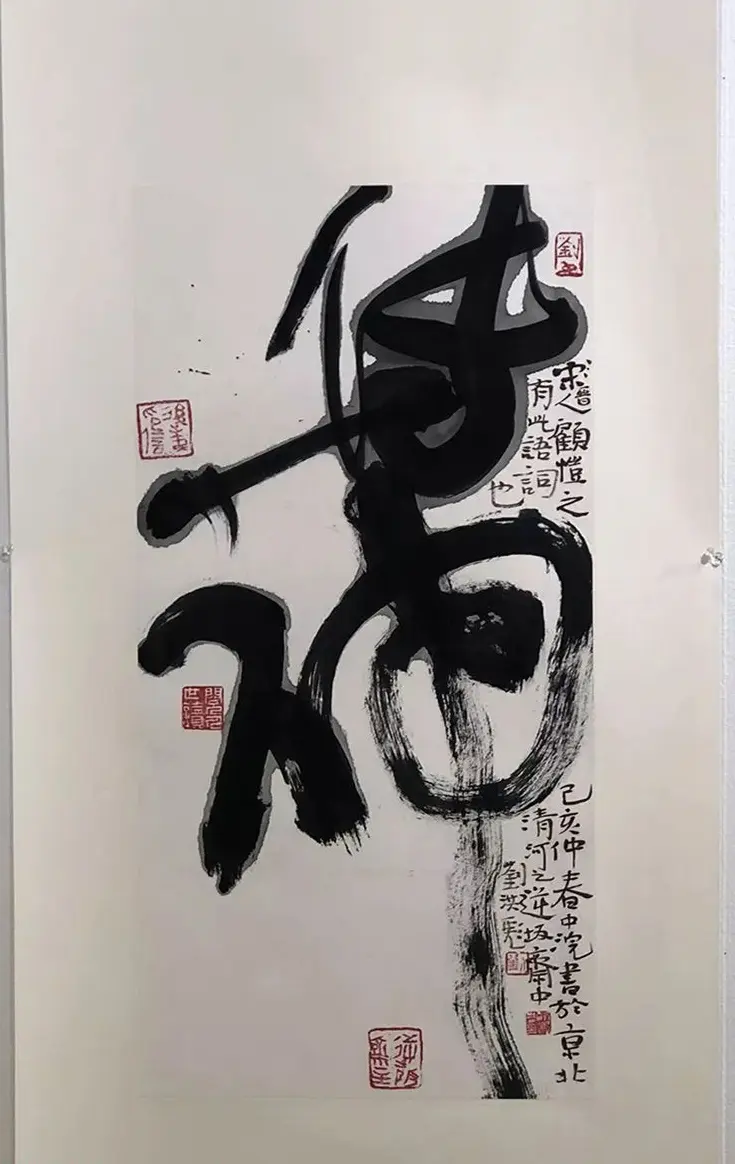 傳神
顧愷之
有此語詞
也
己亥仲春中浣書於京北
清河之逆坂齋中
劉洪彪
劉